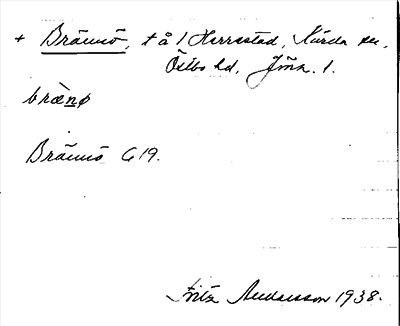 + Brännö, t å 1 Herrestad, Kärda sn,
Östbo hd, Jönk. l.
brænø
Brännö G 19.
Fritz Andersson 1938.